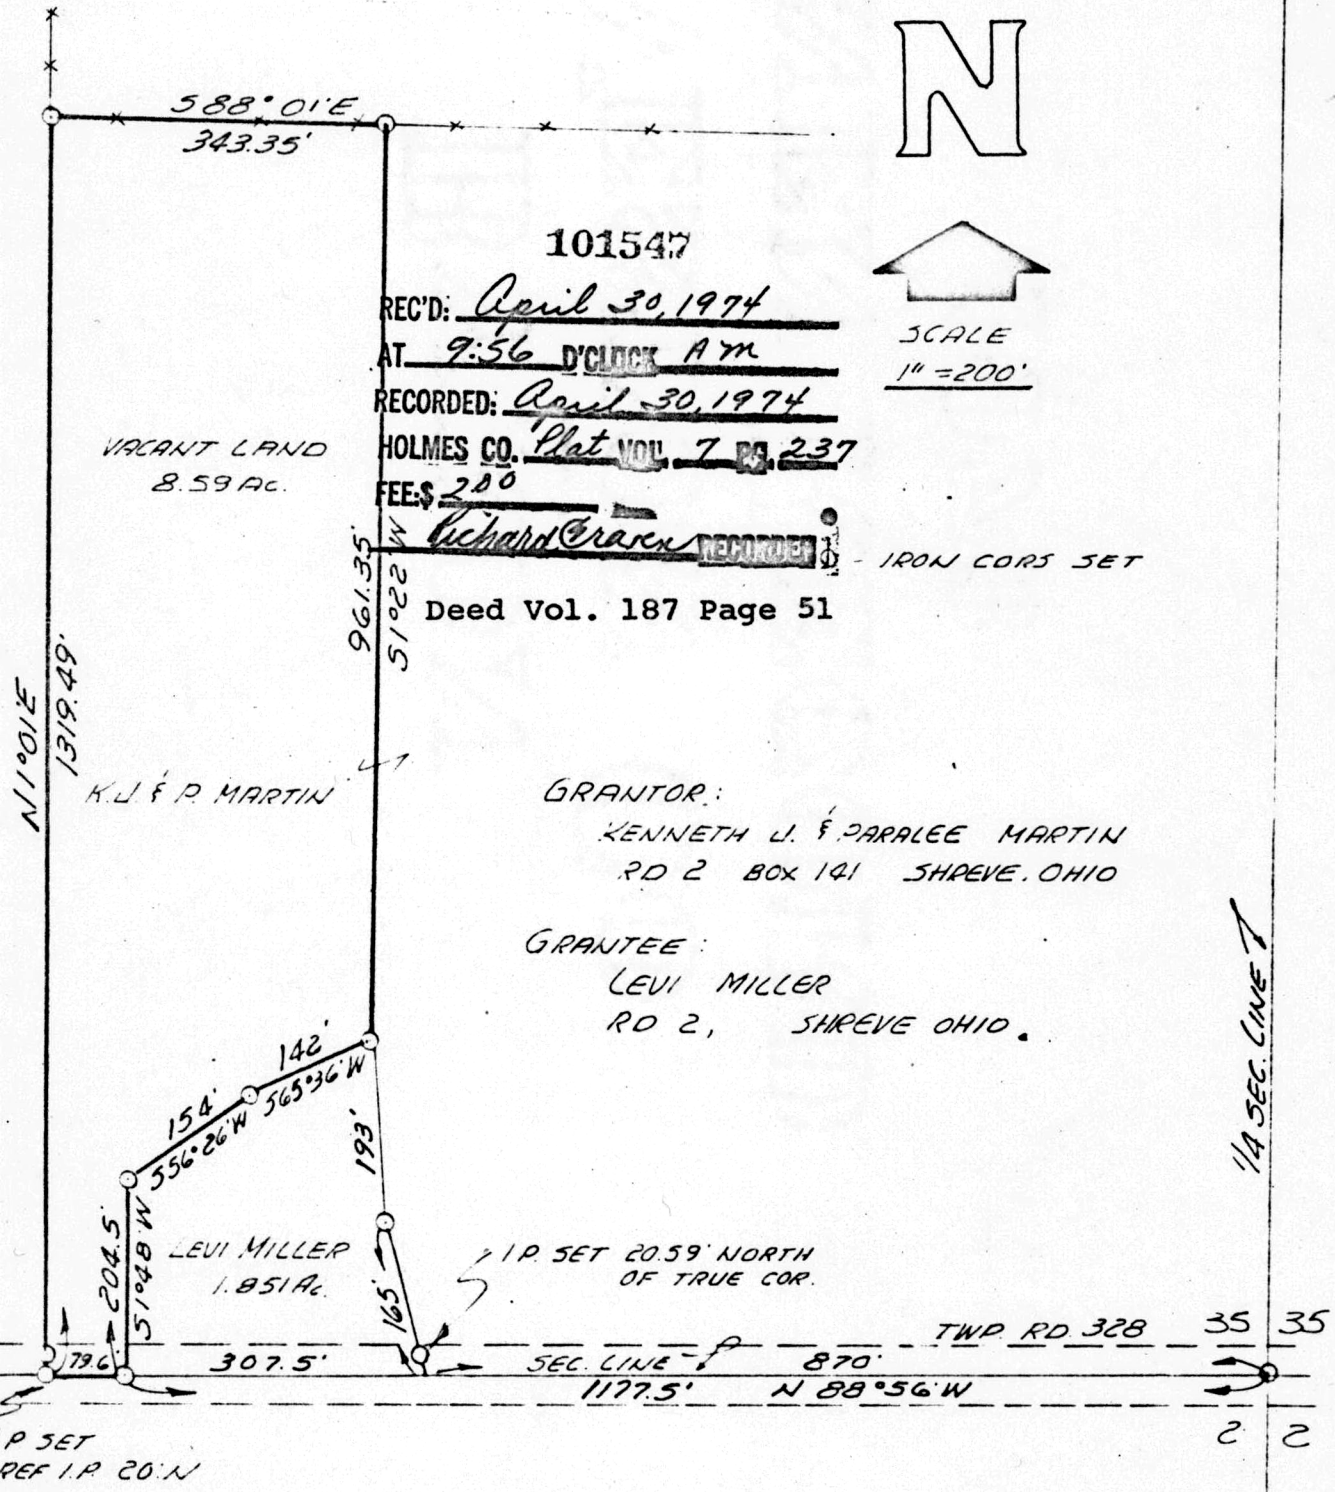 N
S 88° 01' E
343.35'
101547
REC'D: April 30, 1974
AT 9:56 O'CLOCK AM
RECORDED: April 30, 1974
HOLMES CO. Plat VOL. 7 PG. 237
FEE: $ 2.00
Richard Craven RECORDER
Deed Vol. 187 Page 51
SCALE
1" = 200'
IRON CORS SET
VACANT LAND
8.59 Ac.
961.35'
S 1° 22' W
N 1° 01' E
1319.49'
K.J. & P. MARTIN
GRANTOR:
KENNETH J. & PARALEE MARTIN
RD 2 BOX 141 SHREVE, OHIO
GRANTEE:
LEVI MILLER
RD 2, SHREVE OHIO.
1/4 SEC. LINE
142'
S 65° 36' W
154'
S 56° 26' W
193'
204.5'
S 1° 48' W
LEVI MILLER
1.851 Ac.
165'
I.P. SET 20.59' NORTH
OF TRUE COR.
TWP. RD. 328
35 35
79.6
307.5'
SEC. LINE
870'
1177.5'
N 88° 56' W
2 2
P SET
REF I.P. 20' N